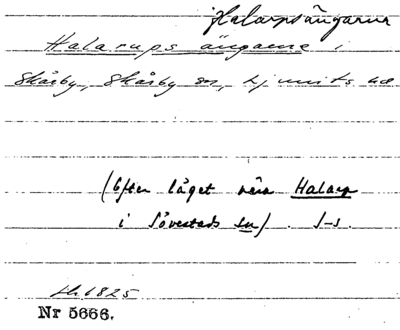 Halarpsängarna
Halarups ängarne i
Skårby, Skårby sn, Ljunits hd
(Efter läget nära Halarp
i Sövestads sn). S-s.
1825
Nr 5666.